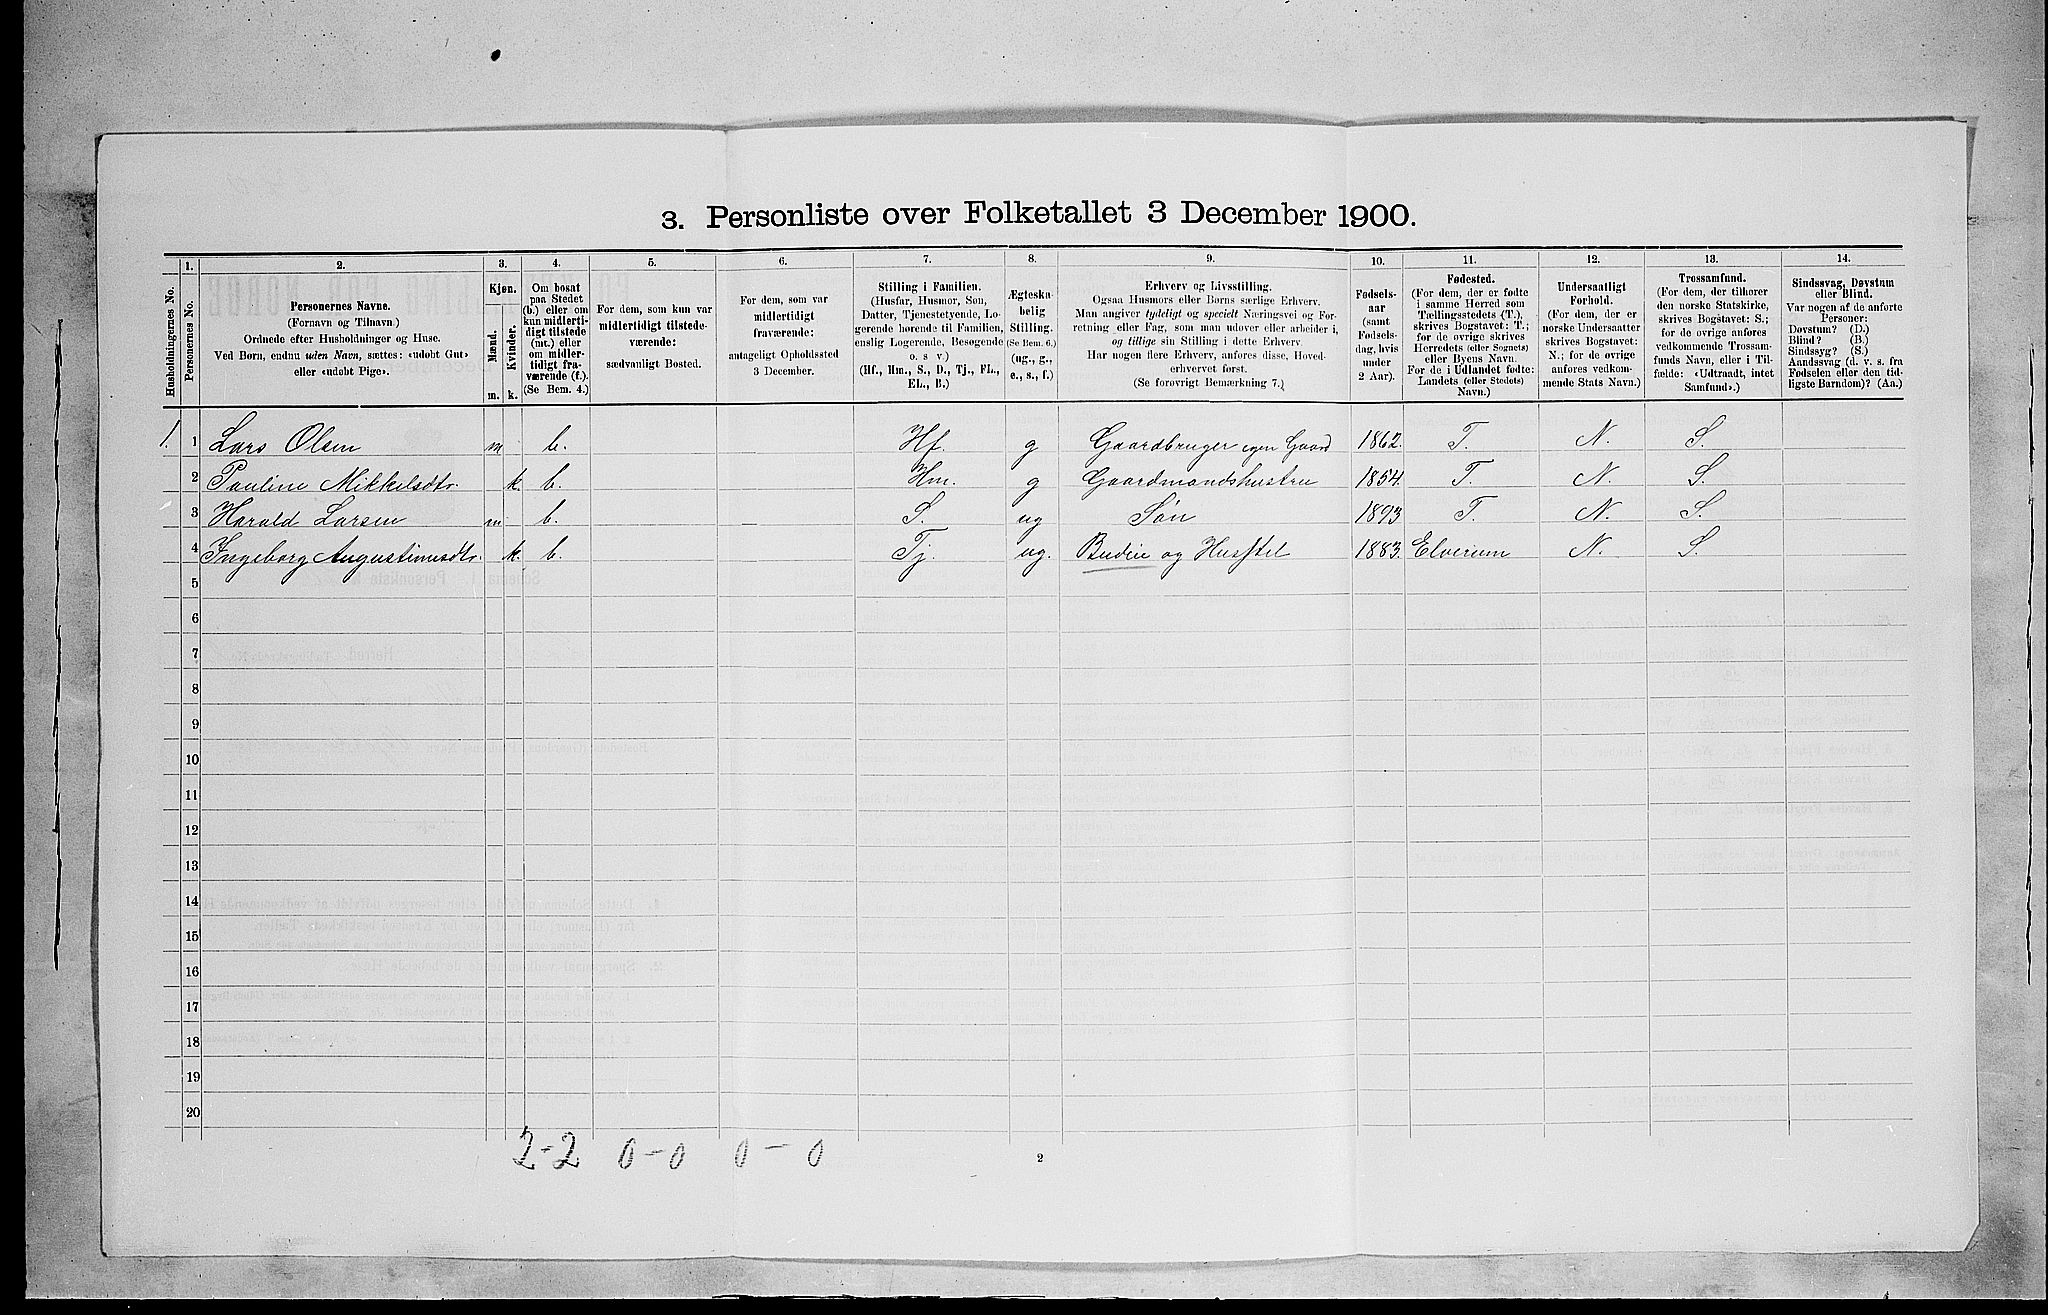 3. Personliste over Folketallet 3 December 1900.
1. 2. 3. 4. 5. 6. 7. 8. 9. 10. 11. 12. 13. 14.
Husholdningernes No.
Personernes No.
Personernes Navne.
(Fornavn og Tilnavn.)
Ordnede efter Husholdninger og Huse.
Ved Børn, endnu uden Navn, sættes: «udøbt Gut»
eller «udøbt Pige».
Kjøn.
Mænd.
Kvinder.
m. k.
Om bosat
paa Stedet
(b.) eller om
kun midlerti-
digt tilstede
(mt.) eller
om midler-
tidigt fra-
værende (f.)
(Se Bem. 4.)
For dem, som kun var
midlertidigt tilstede-
værende:
sædvanligt Bosted.
For dem, som var
midlertidigt
fraværende:
antageligt Opholdssted
3 December.
Stilling i Familien.
(Husfar, Husmor, Søn,
Datter, Tjenestetyende, Lo-
gerende hørende til Familien,
enslig Logerende, Besøgende
o. s v.)
(Hf., Hm., S., D., Tj., FL.,
EL., B.)
Ægteska-
belig
Stilling.
(Se Bem. 6.)
(ug., g.,
e., s., f.)
Erhverv og Livsstilling.
Ogsaa Husmors eller Børns særlige Erhverv.
Man angiver tydeligt og specielt Næringsvei og For-
retning eller Fag, som man udøver eller arbeider i,
og tillige sin Stilling i dette Erhverv.
Har nogen flere Erhverv, anføres disse, Hoved-
erhvervet først.
(Se forøvrigt Bemærkning 7.)
Fødsels-
aar
(samt
Fødsels-
dag, hvis
under
2 Aar).
Fødested.
(For dem, der er fødte
i samme Herred som
Tællingsstedets (T.),
skrives Bogstavet: T.;
for de øvrige skrives
Herredets (eller Sognets)
eller Byens Navn.
For de i Udlandet fødte:
Landets (eller Stedets)
Navn.)
Undersaatligt
Forhold.
(For dem, der er
norske Undersaatter
skrives Bogstavet:
N.; for de øvrige
anføres vedkom-
mende Stats Navn.)
Trossamfund.
(For dem, der tilhører
den norske Statskirke,
skrives Bogstavet: S.;
for de øvrige anføres
vedkommende Trossam-
funds Navn, eller i Til-
fælde: «Udtraadt, intet
Samfund».)
Sindssvag, Døvstum
eller Blind.
Var nogen af de anførte
Personer:
Døvstum? (D.)
Blind? (B.)
Sindssyg? (S.)
Aandssvag (d. v. s. fra
Fødselen eller den tid-
ligste Barndom)? (Aa.)
1. 1 Lars Olsen m b. Hf. g Gaardbruger egen Gaard 1862. T. N. S.
2 Pauline Mikkelsdtr. k. b. Hm. g Gaardmandshustru 1854. T. N. S.
3 Harald Larsen m b. S. ug Søn 1893 T. N. S.
4 Ingeborg Augustinusdtr. k. b. Tj. ug. Budeie og Husstel 1883. Elverum N. S.
5
6
7
8
9
10
11
12
13
14
15
16
17
18
19
20
2-2 0-0 0-0
2